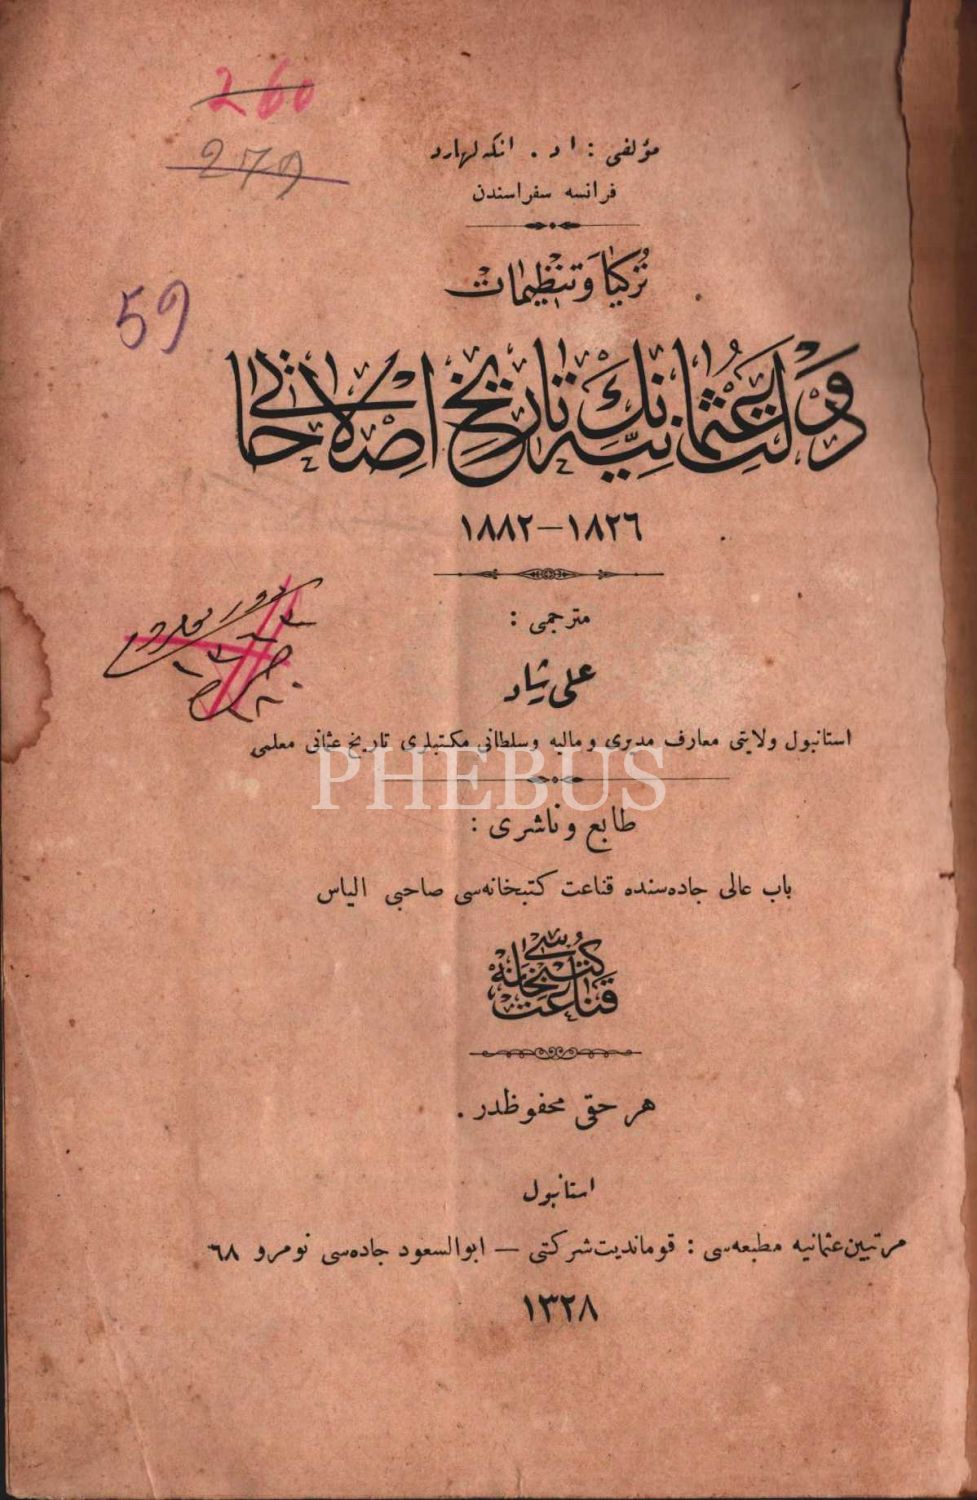 260
279
مؤلفی : اد . انكه لهارد
فرانسه سفراسندن
59
تركیا و تنظیمات
دولت عثمانیه نك تاریخ اصلاحاتی
١٨٢٦—١٨٨٢
مترجمی :
علی رشاد
استانبول ولایتی معارف مدیری و مالیه و سلطانی مكتبلری تاریخ عثمانی معلمی
PHEBUS
طابع و ناشری :
باب عالی جاده سنده قناعت كتبخانه سی صاحبی الیاس
قناعت كتبخانه سی
هر حقی محفوظدر .
استانبول
مرتبین عثمانیه مطبعه سی : قوماندیت شركتی — ابوالسعود جاده سی نومرو ٦٨
١٣٢٨